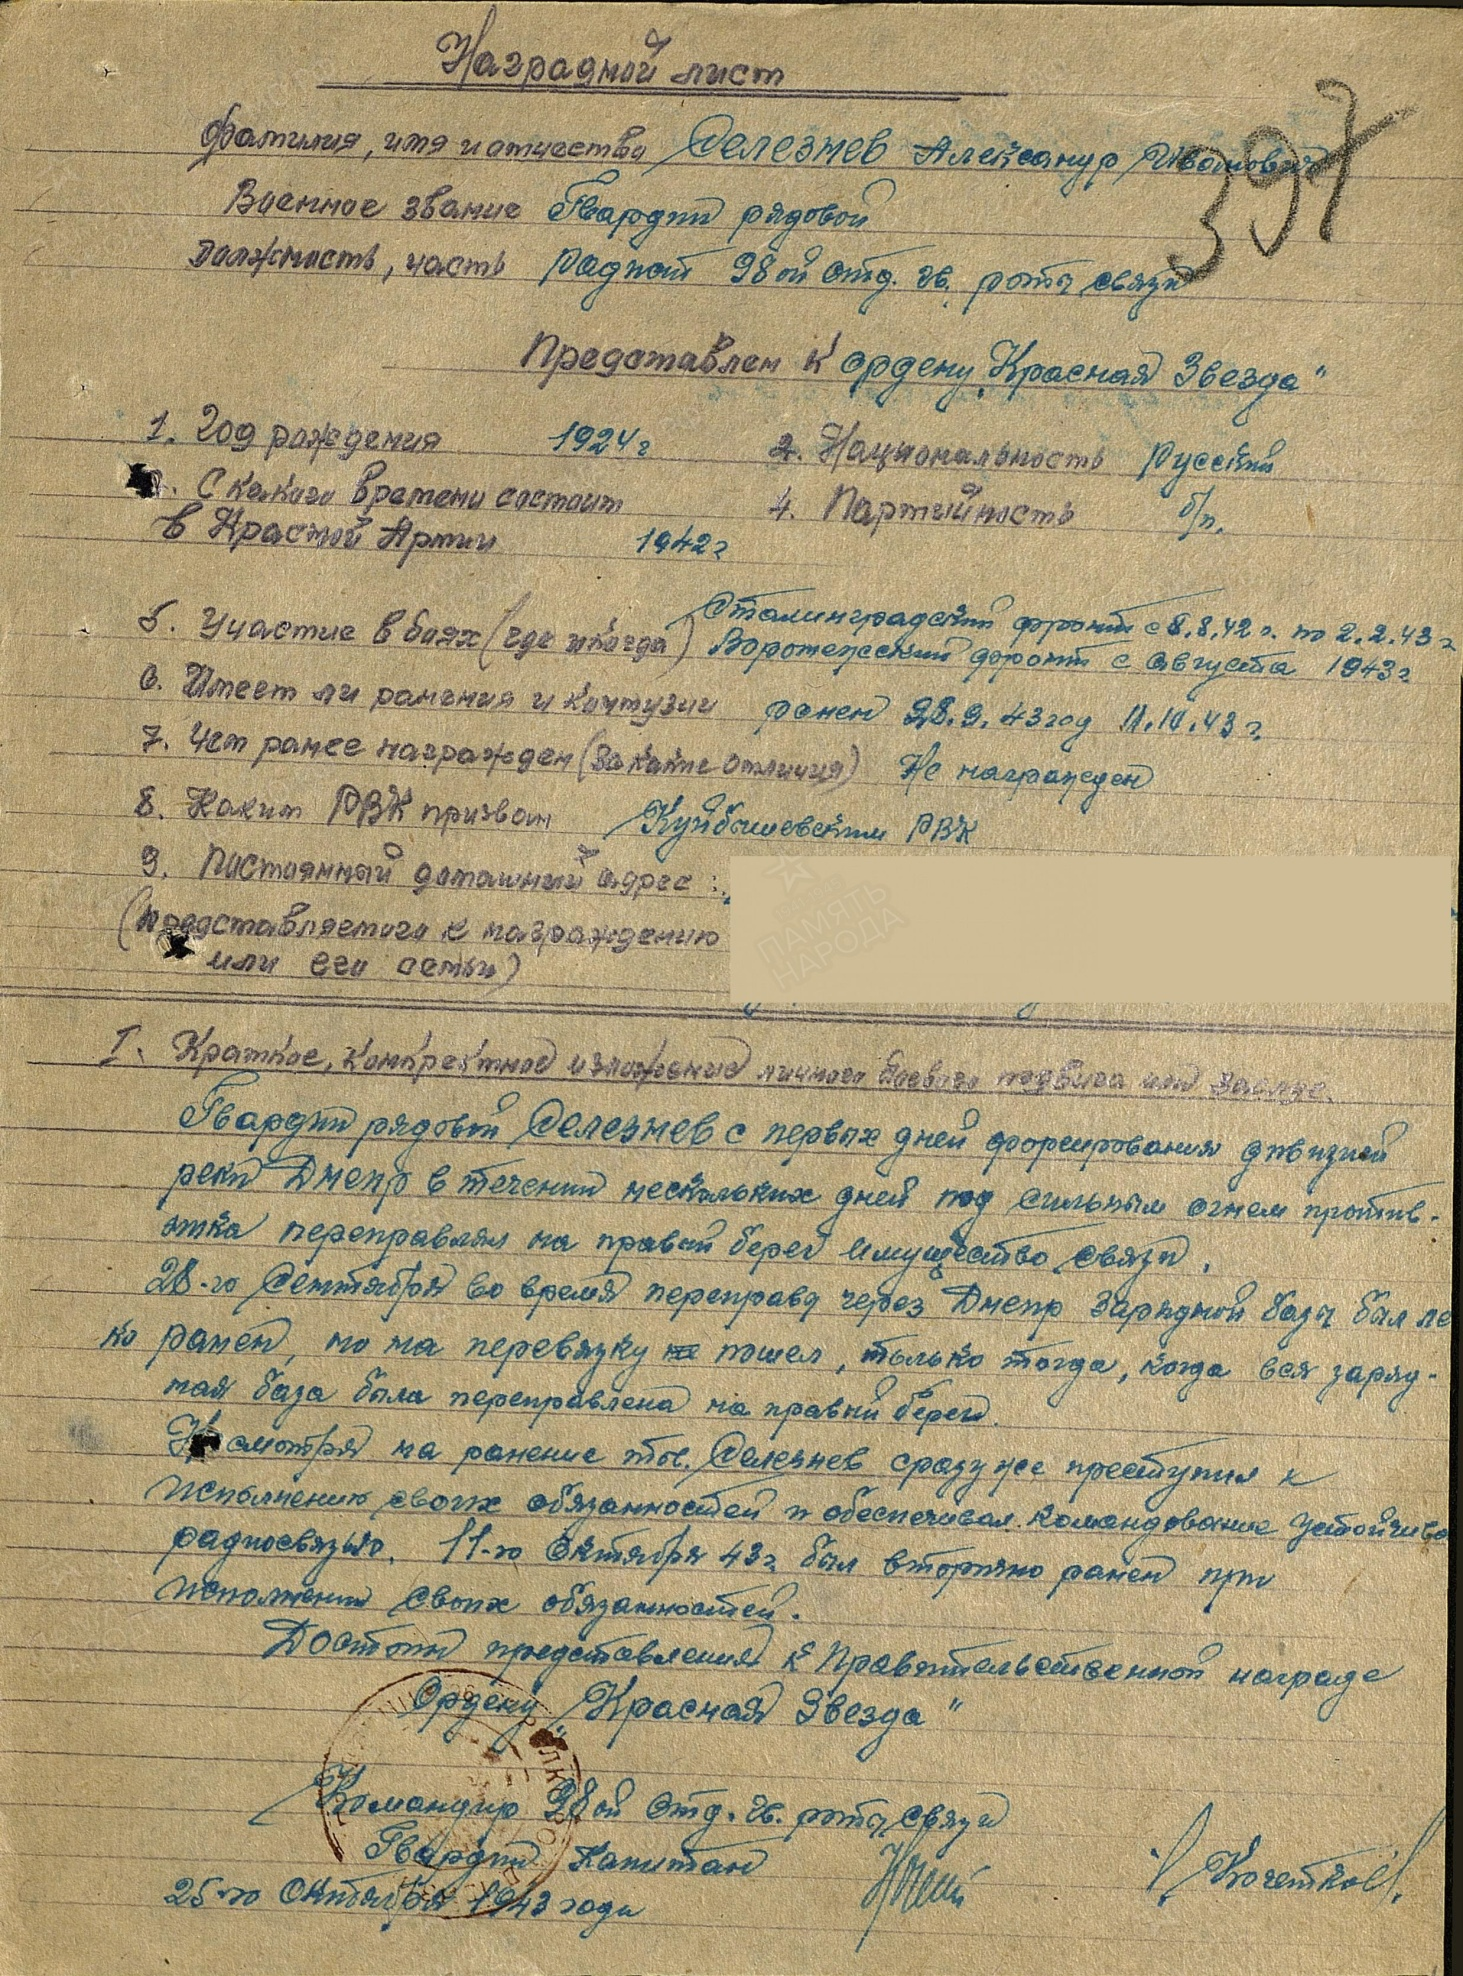 Наградной лист
397
Фамилия, имя и отчество Селезнев Александр Иванович
Военное звание Гвардии рядовой
Должность, часть Радист 98ой отд. гв. роты связи
Представлен к ордену "Красная Звезда"
1. Год рождения 1924г 2. Национальность Русский
С какого времени состоит 4. Партийность б/п.
в Красной Армии 1942г
5. Участие в боях (где и когда) Сталинградский фронт с 8.8.42 г. по 2.2.43 г
Воронежский фронт с августа 1943г
6. Имеет ли ранения и контузии ранен 28.9.43 год 11.10.43 г.
7. Чем ранее награжден (за какие отличия) Не награжден
8. Каким РВК призван Куйбышевским РВК
9. Постоянный домашний адрес:
(представляемого к награждению
или его семьи)
ПАМЯТЬ
НАРОДА
I. Краткое, конкретное изложение личного боевого подвига или заслуг.
Гвардии рядовой Селезнев с первых дней форсирования дивизией
реки Днепр в течении нескольких дней под сильным огнем против-
ника переправлял на правый берег имущество связи.
28-го Сентября во время переправы через Днепр зарядной базы был ле
ко ранен, но на перевязку не пошел, только тогда, когда вся заряд-
ная база была переправлена на правый берег.
Несмотря на ранение тов. Селезнев сразу же преступил к
исполнению своих обязанностей и обеспечивал командование устойчиво
радиосвязью. 11-го Октября 43г. был вторично ранен при
исполнении своих обязанностей.
Достоин представления к Правительственной награде
Ордену "Красная Звезда"
Командир 98ой отд. гв. роты связи
Гвардии Капитан /Кочетков/.
25-го Октября 1943 года